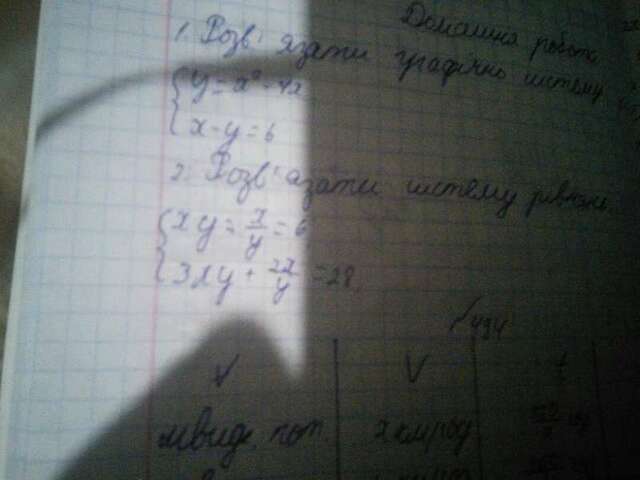 Домашня робота
1. Розв'язати графічно систему
{ y = x² - 4x
x - y = 6
2. Розв'язати систему рівнянь
{ xy = x/y = 6
3xy + 2x/y = 28.
√494
V V t
швидк. пот. x км/год